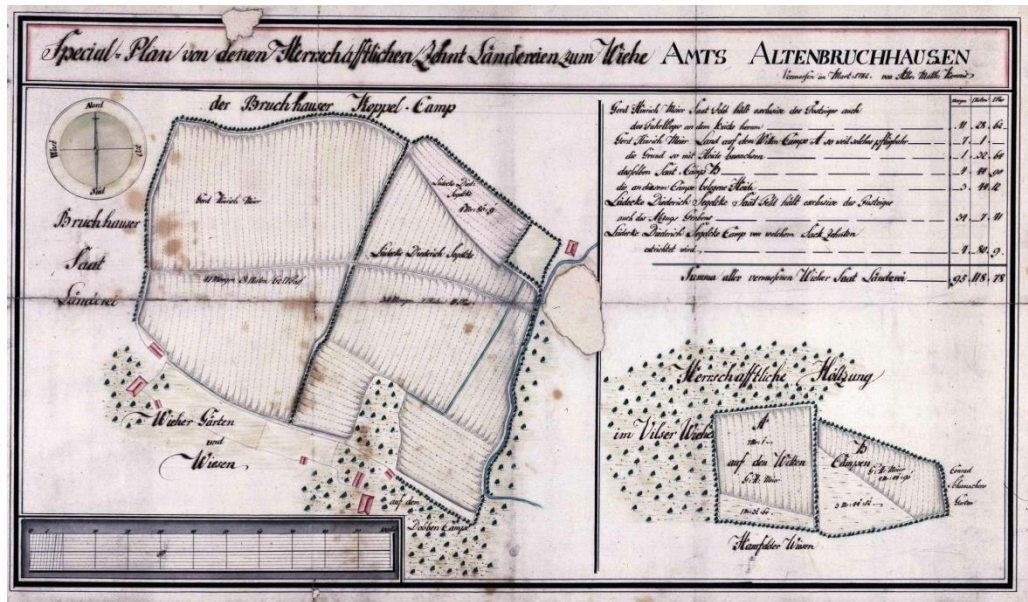 Special-Plan von denen Herrschafftlichen Zehnt Ländereien zum Wiehe AMTS ALTENBRUCHHAUSEN
Vermessen im Mart.
der Bruchhauser Koppel-Camp
Nord
West
Ost
Süd
Bruchhauser
Saat
Länderei
Gerd Hinrich Meier
Lüdecke Died.
Segelcke
Lüderke Diederich Segelcke
Wieher Gärten
und
Wiesen
auf dem
Dobben Camps
Morgen
Gerd Hinrich Meier Saat Feld hält exclusive der Fusteige auch
des Fahrweges an den herum 41 28 62
Gerd Hinrich Meier Land auf dem Wilten Camps A so weit solches pflugbahr 7 1
die Grund so mit Heide bewachsen 1 22 60
daselben Saat-Camp B 4 44 90
die an diesem Camps belegene Heide 3 44 12
Lüdecke Diederich Segelcke Saat-Feld hält exclusive der Fusteige
auch des Abzugs Grabens 34 7 41
Lüderke Diederich Segelcke Camp von welchem Sack Zehnten
entrichtet wird 4 80 9
Summa aller vermessenen Wieher Saat Länderei 95 118 78
Herrschafftliche Höltzung
im Vilser Wiehe
A
auf den Wilten
G. H. Meier
B
Campen
G. H. Meier
Conrad
Garten
Hamfelder Wiesen